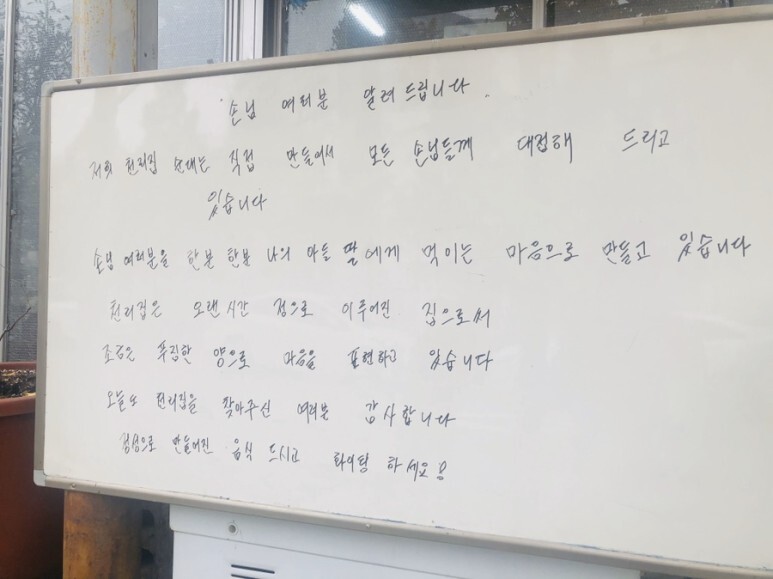 손님 여러분 알려 드립니다.
저희 천리집 순대는 직접 만들어서 모든 손님들께 대접해 드리고
있습니다
손님 여러분을 한분 한분 나의 아들 딸에게 먹이는 마음으로 만들고 있습니다
천리집은 오랜시간 정으로 이루어진 집으로써
조금은 푸짐한 양으로 마음을 표현하고 있습니다
오늘도 천리집을 찾아주신 여러분 감사합니다
정성으로 만들어진 음식 드시고 화이팅 하세요!